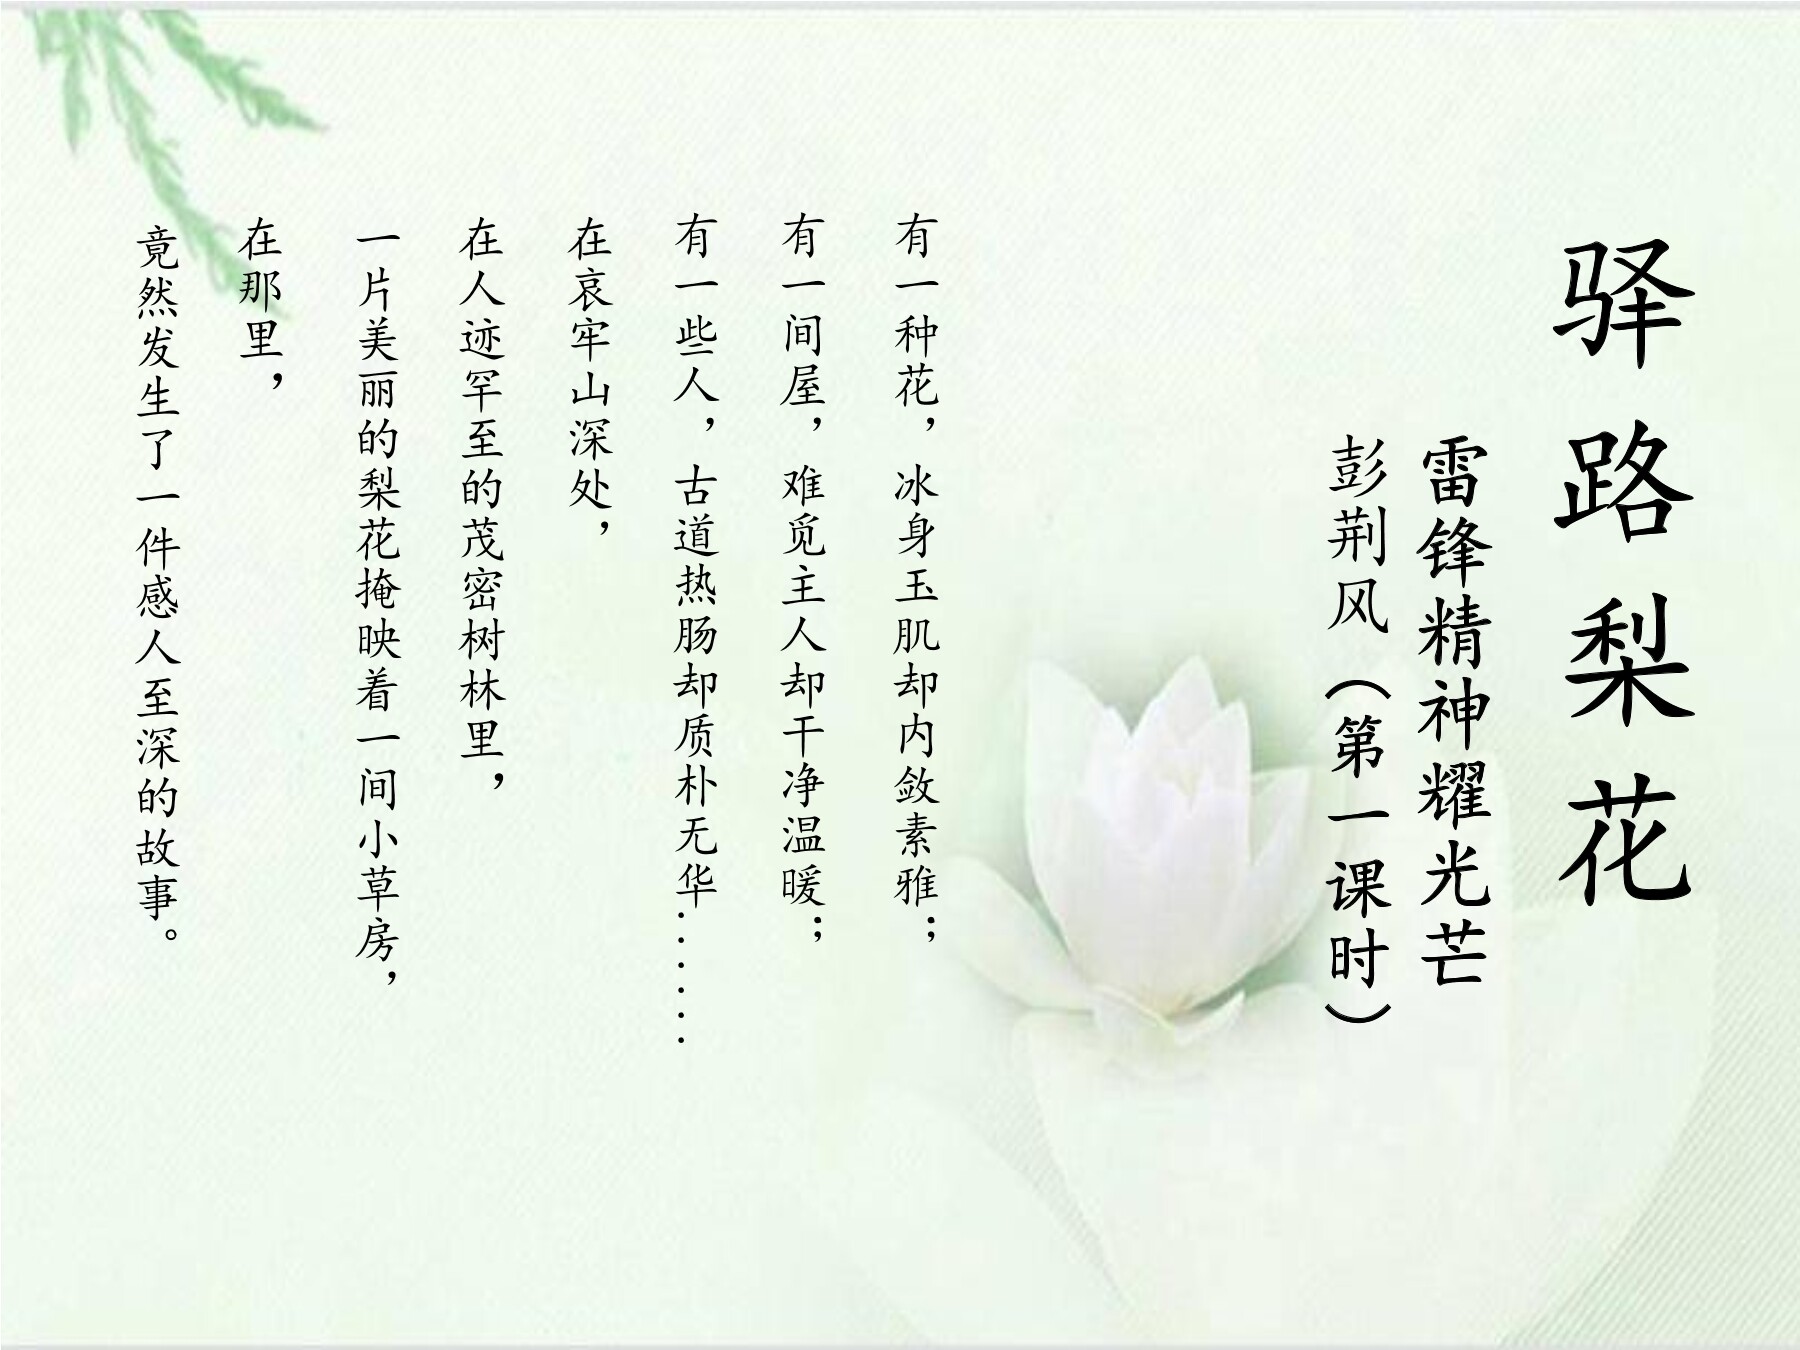 驿路梨花
雷锋精神耀光芒
彭荆风（第一课时）
有一种花，冰身玉肌却内敛素雅；
有一间屋，难觅主人却干净温暖；
有一些人，古道热肠却质朴无华......
在哀牢山深处，
在人迹罕至的茂密树林里，
一片美丽的梨花掩映着一间小草房，
在那里，
竟然发生了一件感人至深的故事。